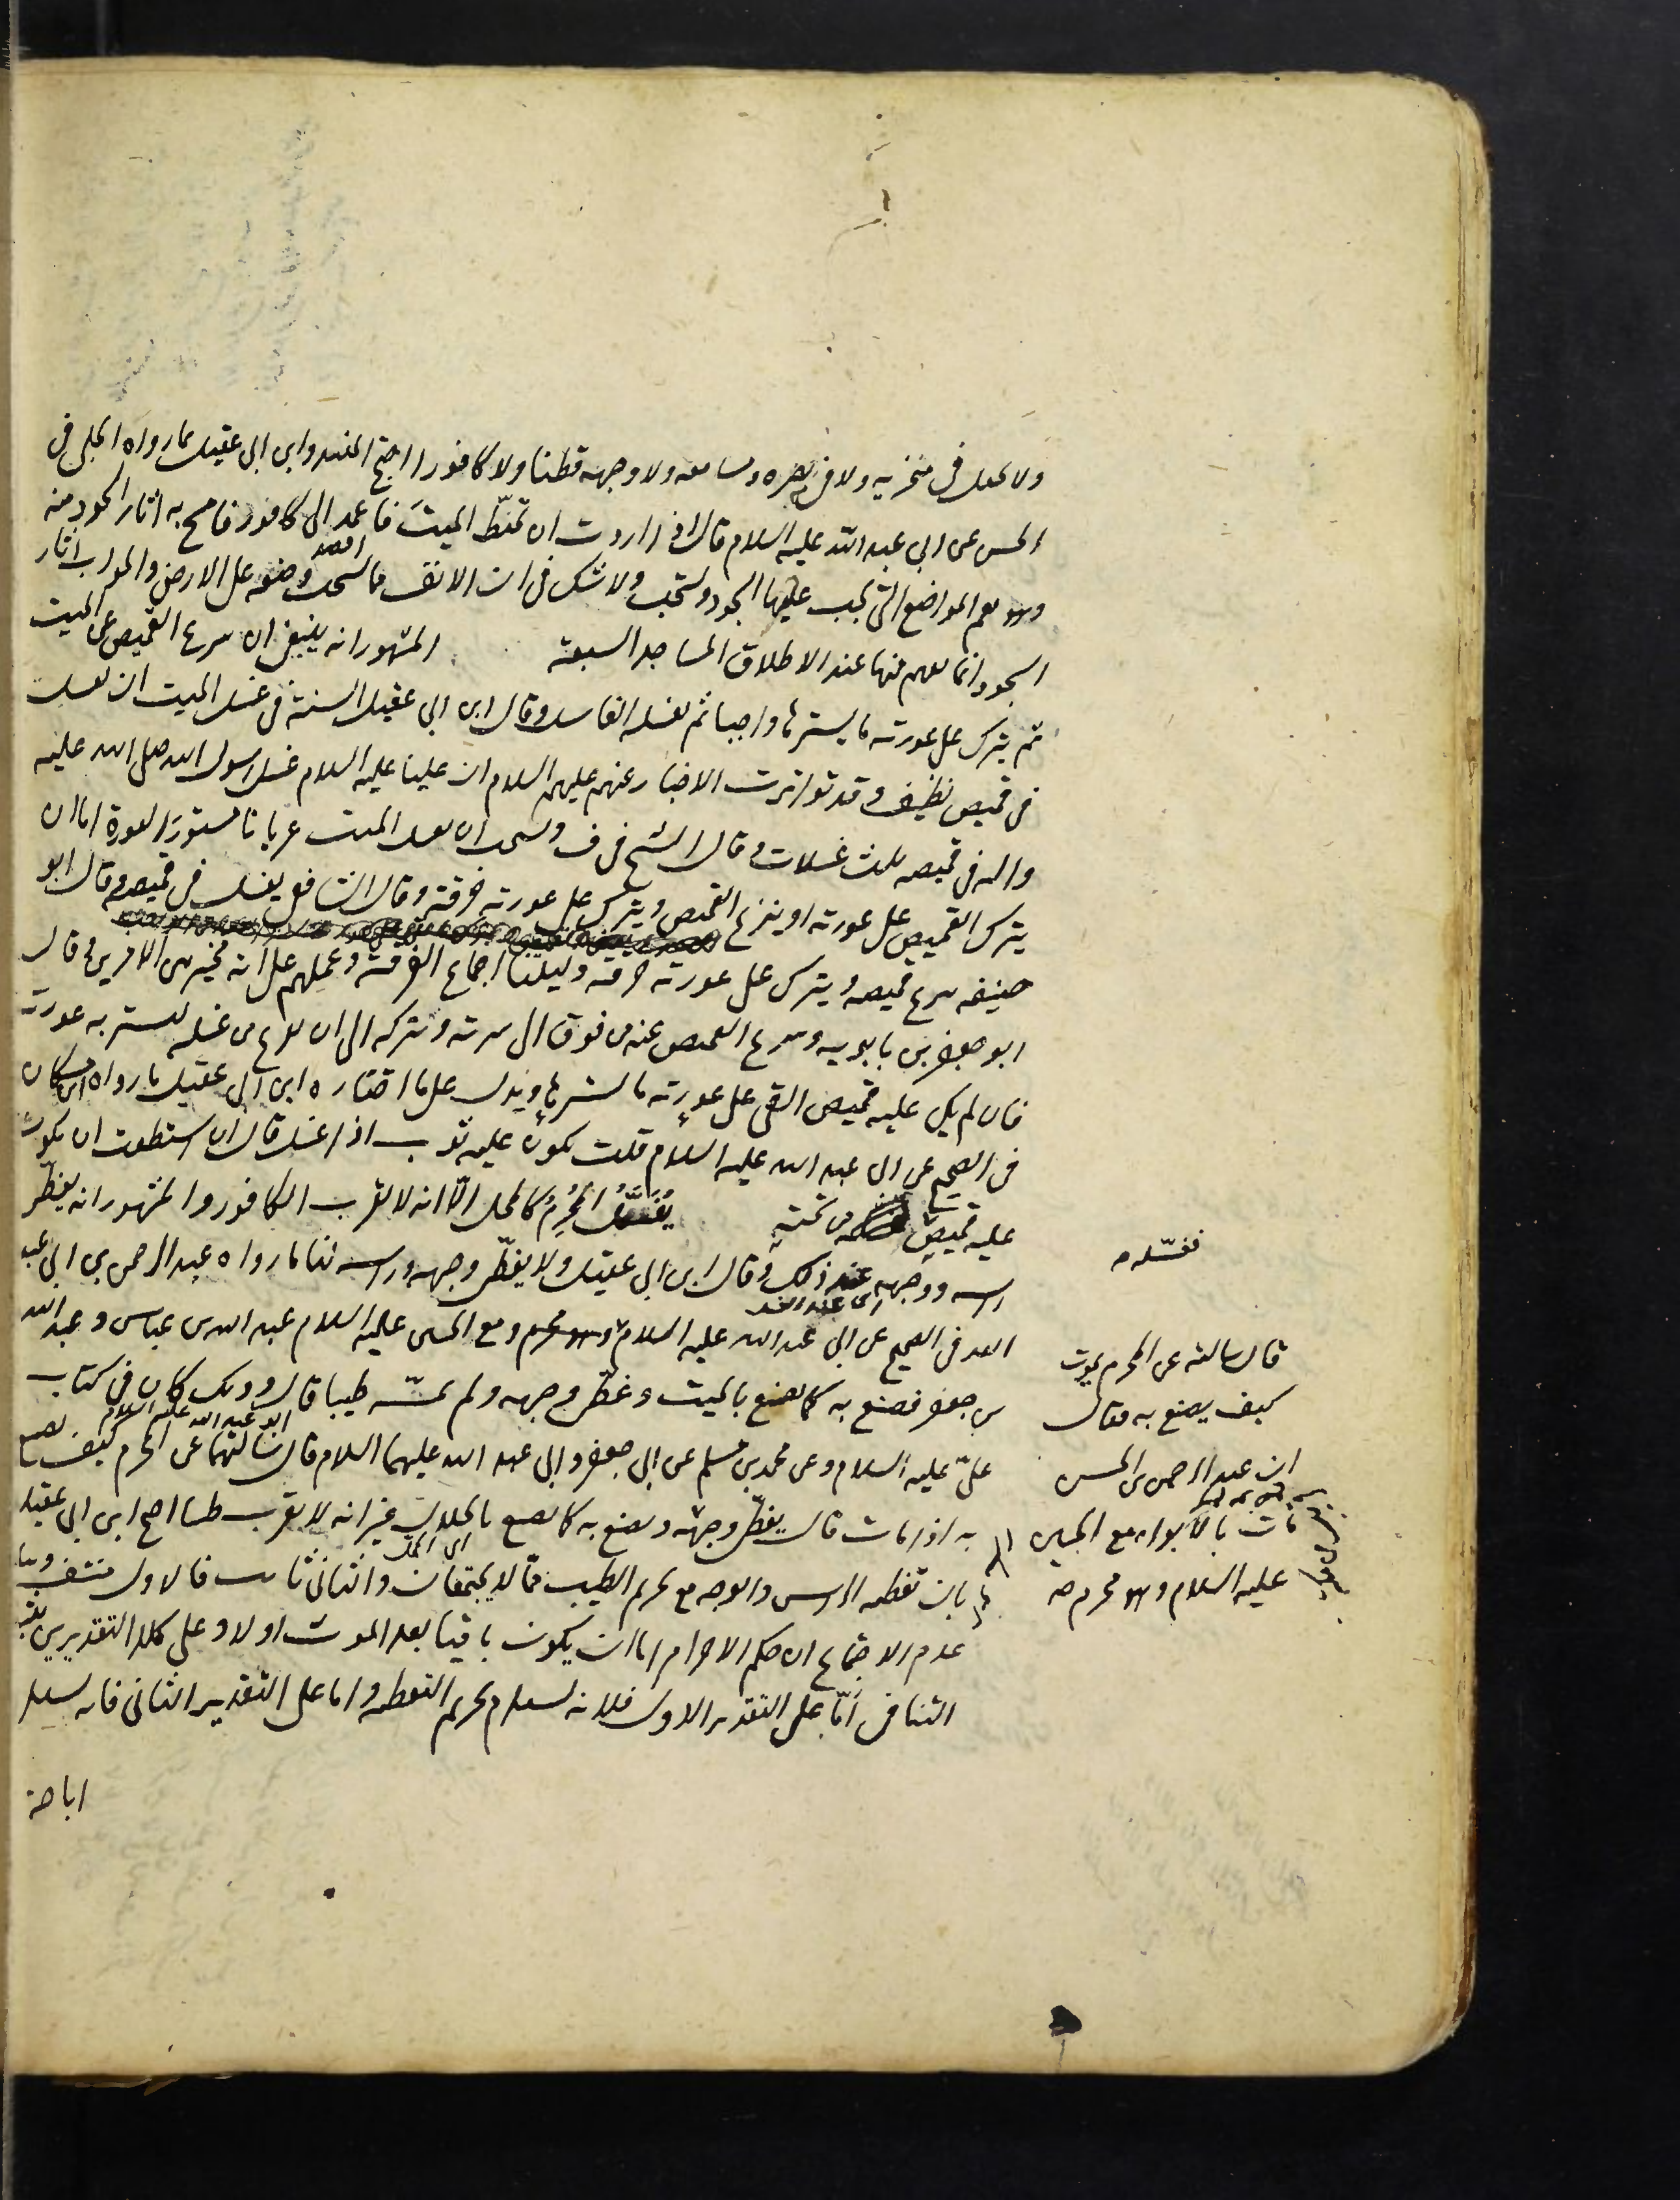 ولا يجعل في منخريه ولا في بصره ومسامعه ولا وجهه قطنا ولا كافورا احتج المفيد وابن ابي عقيل بما رواه الحلبي في
الحسن عن ابي عبد الله عليه السلام قال اذا اردت ان تحنّط الميتَ فاعمد الى كافور فامسح به اثار السجود منه
وهو يعم المواضع التي يجب عليها السجود ويستحب ولا شك في ان الانف مما يستحب وضعه على الارض والجواب اثار
السجود انما يفهم منها عند الاطلاق المساجد السبعة المشهور انه ينبغي ان ينزع القميص عن الميت
ثم يترك على عورته ما يسترها واجبا ثم يغسله الغاسل وقال ابن ابي عقيل السنة في غسل الميت ان يغسل
في قميص نظيف وقد تواترت الاخبار عنهم عليهم السلام ان عليا عليه السلام غسل رسول الله صلى الله عليه
واله في قميصه ثلث غسلات وقال الشيخ في ف ويستحب ان يغسل الميت عريانا مستورَ العورة اما ان
يترك القميص على عورته او ينزع القميص ويترك على عورته خرقة وقال الشافعي يغسل في قميصه وقال ابو
حنيفه ينزع قميصه ويترك على عورته خرقة دليلنا اجماع الفرقة وعملهم على انه مخير بين الامرين وقال
ابو جعفر بن بابويه وينزع القميص عنه من فوق الى سرته ويتركه الى ان يفرغ من غسله ليستر به عورته
فان لم يكن عليه قميص القى على عورته ما يسترها ويدل على ما اختاره ابن ابي عقيل ما رواه ابن مسكان
في الصحيح عن ابي عبد الله عليه السلام قلت يكون عليه ثوب اذا غسل قال ان استطعت ان يكون
عليه قميص من تحته يُغَسَّلُ المُحْرِمُ كالمحل الّا انه لا يقرب الكافور والمشهور انه يغطّى
فغسّله م
راسه ووجهه عند ذلك وقال ابن ابي عقيل ولا يغطّى وجهه وراسه لنا ما رواه عبد الرحمن بن ابي عبد
الله في الصحيح عن ابي عبد الله عليه السلام وهو محرم ومع الحسين عليه السلام عبد الله بن عباس وعبد الله
قال سالته عن المحرم يموت
بن جعفر فصنع به كما يصنع بالميت وغطّى وجهه ولم يمسّه طيبا قال وذلك كان في كتاب
كيف يصنع به فقال
ابو عبد الله عليه السلام
علىّ عليه السلام وعن محمد بن مسلم عن ابي جعفر وابي عبد الله عليهما السلام قال سالتهما عن المحرم كيف يصنع
ان عبد الرحمن بن الحسن
به اذا مات قال يغطّى وجهه ويصنع به كما يصنع بالحلال غير انه لا يقرب طيبا احتج ابن ابي عقيل
مات بالابواء مع الحسين
بان تغطيه الراس والوجه مع تحريم الطيب مما لا يجتمعان والثاني ثابت فالاول منتف
عليه السلام وهو محرم صح
عدم الاجتماع ان حكم الاحرام اما ان يكون باقيا بعد الموت او لا وعلى كلا التقديرين
التنافى أمّا على التقدير الاول فلانه يستلزم تحريم التغطيه واما على التقدير الثاني فانه يستلزم
اباحة